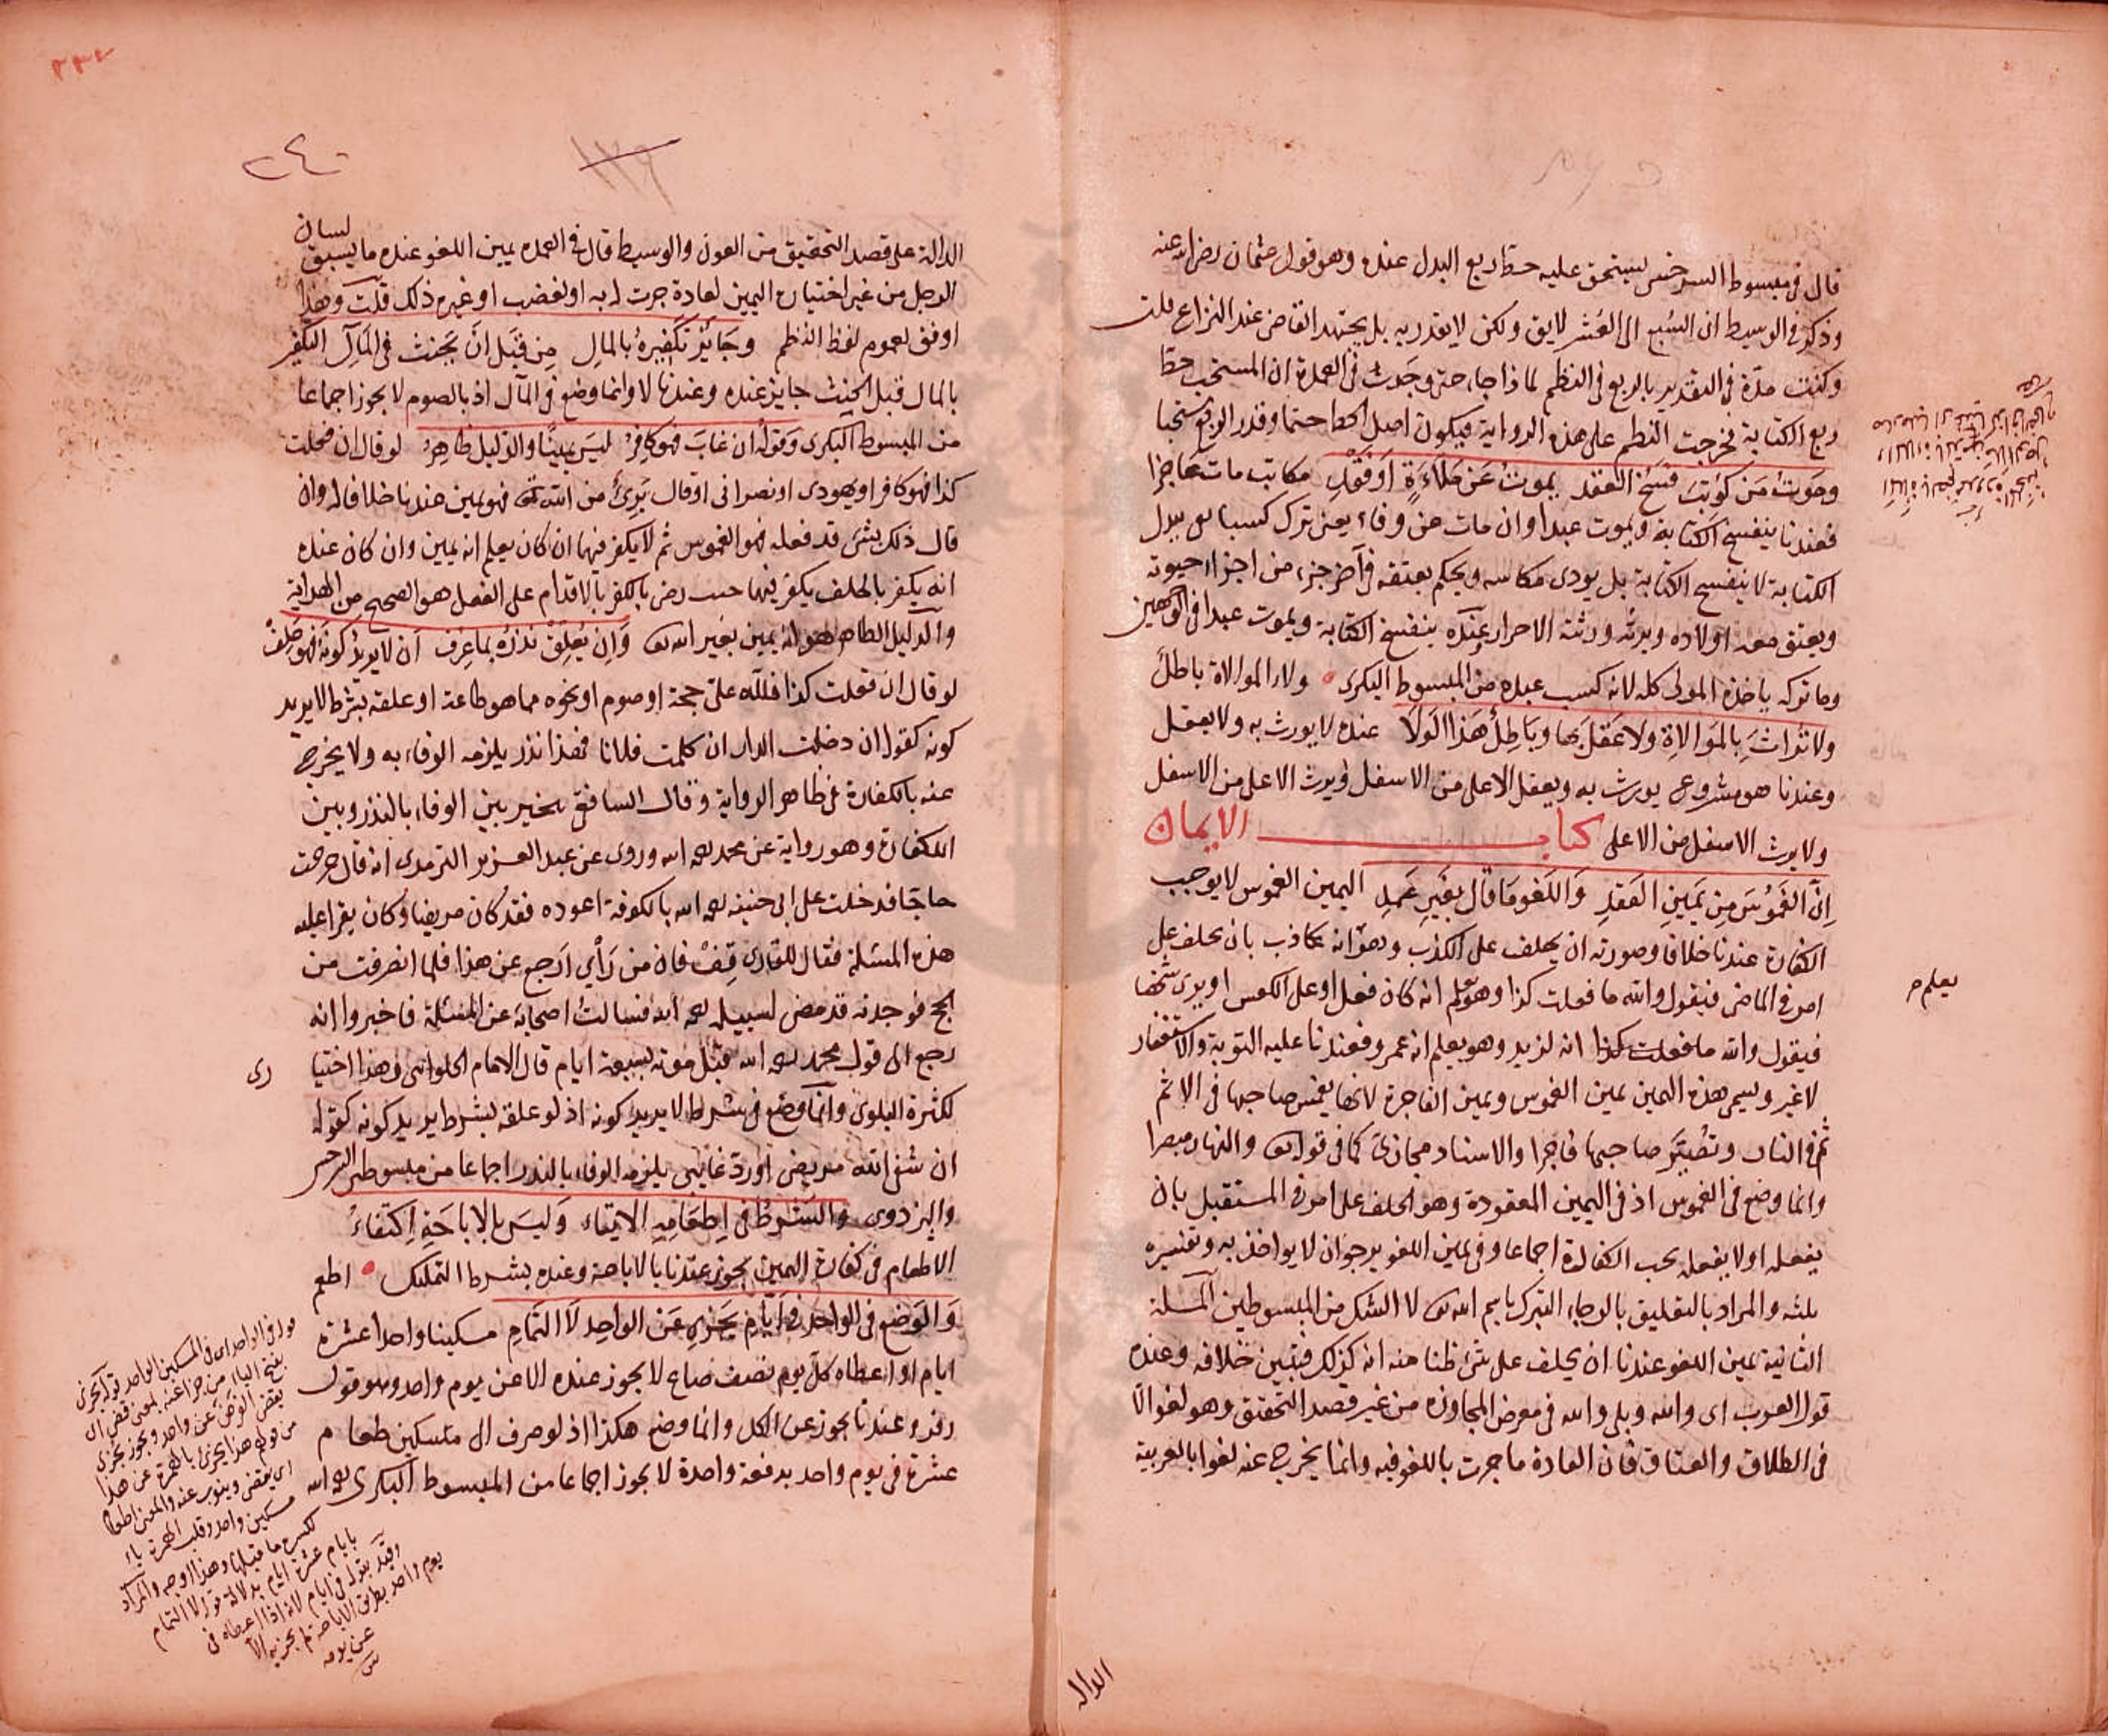 قال في مبسوط السرخسي يستحق عليه حط ربع البدل عنده وهو قول عثمان رضي الله عنه
وذكر في الوسيط ان السُبع الى العُشر لايق ولكن لا يقدر به بل يجتهد القاضي عند النزاع قلت
وكنت مدّة في التقدير بالربع في النظم لماذا جاء حتى وجدت في العمدة ان المستحب حط
ربع الكتابة فخرجت النظم على هذه الرواية فيكون اصل الحط حتما وقدر الربع مستحبا
وموتُ مَن كوتِبَ فسخُ العقد يموتُ عَن مَلاءَةٍ اَو فَقْدِ مكاتب مات عاجزا
فعندنا ينفسخ الكتابة ويموت عبدا وان مات عن وفاء يعني ترك كسبا يفي ببدل
الكتابة لا ينفسخ الكتابة بل يودى مكاسبه ويحكم بعتقه في آخر جزء من اجزاء حيوته
ويعتق معه اولاده ويرثه ورثته الاحرار وعنده ينفسخ الكتابة ويموت عبدا في الوجهين
وما تركه ياخذه المولى كله لانه كسب عبده من المبسوط البكرى ولاء الموالاة باطل
ولا تُراثَ بِالمَوالاةِ ولا عَقلَ بها وبَاطِلٌ هَذا الوَلا عنده لا يورث به ولا يعقل
وعندنا هو مشروع يورث به ويعقل الاعلى من الاسفل ويرث الاعلى من الاسفل
ولا يرث الاسفل من الاعلى كتاب الايمان
اِنّ الغَمُوسَ مِن يَمينِ العَقدِ وَاللَغو مَا قال بِغَيرِ عَمدِ اليمين الغموس لا يوجب
الكفارة عندنا خلافا وصورته ان يحلف على الكذب وهو انه كاذب بان يحلف على
امر في الماضي فيقول والله ما فعلت كذا وهو يعلم انه كان فعل او على العكس او يرى شخصا
يعلم
فيقول والله ما فعلت كذا انه لزيد وهو يعلم انه عمرو فعندنا عليه التوبة والاستغفار
لا غير ويسمى هذه اليمين يمين الغموس ويمين الفاجرة لانها يغمس صاحبها في الاثم
ثم في النار وتُصَيِّر صاحبها فاجرا والاسناد مجازى كما في قوله تعالى والنهار مبصرا
وانما وضع في الغموس اذ في اليمين المعقودة وهو الحلف على امر في المستقبل بان
يفعله او لا يفعله يجب الكفارة اجماعا وفي يمين اللغو يرجو ان لا يواخذ به وتفسيره
ثلثه والمراد بالتعليق بالرجاء التبرك باسم الله تعالى لا الشك من المبسوطين المسئلة
الثانية يمين اللغو عندنا ان يحلف على شئ ظنا منه انه كذلك فتبين خلافه وعنده
قول العرب اى والله وبلى والله في معرض المحاورة من غير قصد التحقيق وهو لغو الا
في الطلاق والعتاق فان العادة ما جرت باللغو فيه وانما يخرج عنه لغوا بالعربية
الدالة
٢٤٠
١٣٩
الدالة على قصد التحقيق من العون والوسيط قال في العمدة يمين اللغو عنده ما يسبق لسان
الرجل من غير اختياره اليمين لعادة جرت له به او لغضب او غير ذلك قلت وهذا
اوفق لعموم لفظ النظم وجَائِزٌ تكفِيرهُ بالمالِ مِن قَبَلِ اَنْ يَحنَثَ في المَآلِ التكفير
بالمال قبل الحنث جايز عنده وعندنا لا وانما وضع في المال اذ بالصوم لا يجوز اجماعا
من المبسوط البكرى وَقولُهُ ان غابَ فهوَ كافِرُ ليسَ يمينًا والدَليلُ ظاهِرُ لو قال ان فعلت
كذا فهو كافر او يهودى او نصرانى او قال بَرِئٌ من الله تعالى فهو يمين عندنا خلافا له وان
قال ذلك بشئ قد فعله فهو الغموس ثم لا يكفر فيهما ان كان يعلم انه يمين وان كان عنده
انه يكفر بالحلف يكفر فيهما حيث رضى بالكفر بالاقدام على الفعل هو الصحيح من الهداية
والدليل الظاهر هو انه يمين بغير الله تعالى وَاِن يُعلِقْ نذرَه بماعرف ان لا يريدُ كونَه فهوَ حَلِفْ
لو قال ان فعلت كذا فلله علىّ حجة او صوم او نحوه مما هو طاعة او علقه بشرط لا يريد
كونه كقوله ان دخلت الدار ان كلمت فلانا فهذا نذر يلزمه الوفاء به ولا يخرج
عنه بالكفارة في ظاهر الرواية وقال الشافعى يخير بين الوفاء بالنذر وبين
الكفارة وهو رواية عن محمد رحمه الله وروى عن عبد العزيز الترمدى انه قال خرجت
حاجّا فدخلت على ابى حنيفه رحمه الله بالكوفة اعوده فقد كان مريضا وكان يقرا عليه
هذه المسئلة فقال للقارى قِف فان من رَأيي اَرجع عن هذا فلما انصرفت من
الحج فوجدته قد مضى لسبيله رحمه الله فسالت اصحابه عن المسئلة فاخبروا انه
رجع الى قول محمد رحمه الله قبل موته بسبعة ايام قال الامام الحلوانى وهذا اختيا
رى
لكثرة البلوى وانما وضع في شرط لا يريد كونه اذ لو علقه بشرط يريد كونه كقوله
ان شفى الله مريضى او ردّ غايبى يلزمه الوفاء بالنذر اجماعا من مبسوطى السرخسى
والبزدوى وَالشَرطُ في اِطعَامِهِ الايتاءُ وَليسَ بالاباحَةِ اِكتفاءُ
الاطعام في كفارة اليمين يجوز عندنا بالاباحة وعنده بشرط التمليك اطعم
وَالوضعُ في الواحِد في اَيّامِ يَجزِى عَنِ الواحِدِ لَا التَمامِ مسكينا واحدا عشرة
ايام او اعطاه كلّ يوم نصف صاع لا يجوز عنده الا عن يوم واحد وهو قول
زفر وعندنا يجوز عن الكل وانما وضع هكذا اذ لو صرف الى مسكين طعام
عشرة في يوم واحد بدفعة واحدة لا يجوز اجماعا من المبسوط البكرى رحمه الله
قوله في الواحد اى في المسكين الواحد قوله يجزى
بفتح الياء من جزا عنه بمعنى قضى اى
يقضى الوضع عن واحد ويجوز يجزى
من قولهم هذا يجزئ بالهمزة عن هذا
اى يقضى وينوب عنه والمعنى اطعام
مسكين واحد وقلب الهمزة ياء
لكسرة ما قبلها وهذا اوجه والمراد
بايام عشرة ايام بدلالة قوله لا التمام
وقيد بقوله في ايام لانه اذا اعطاه في
يوم واحد بطريق الاباحة لم يجزيه الا
عن يومه